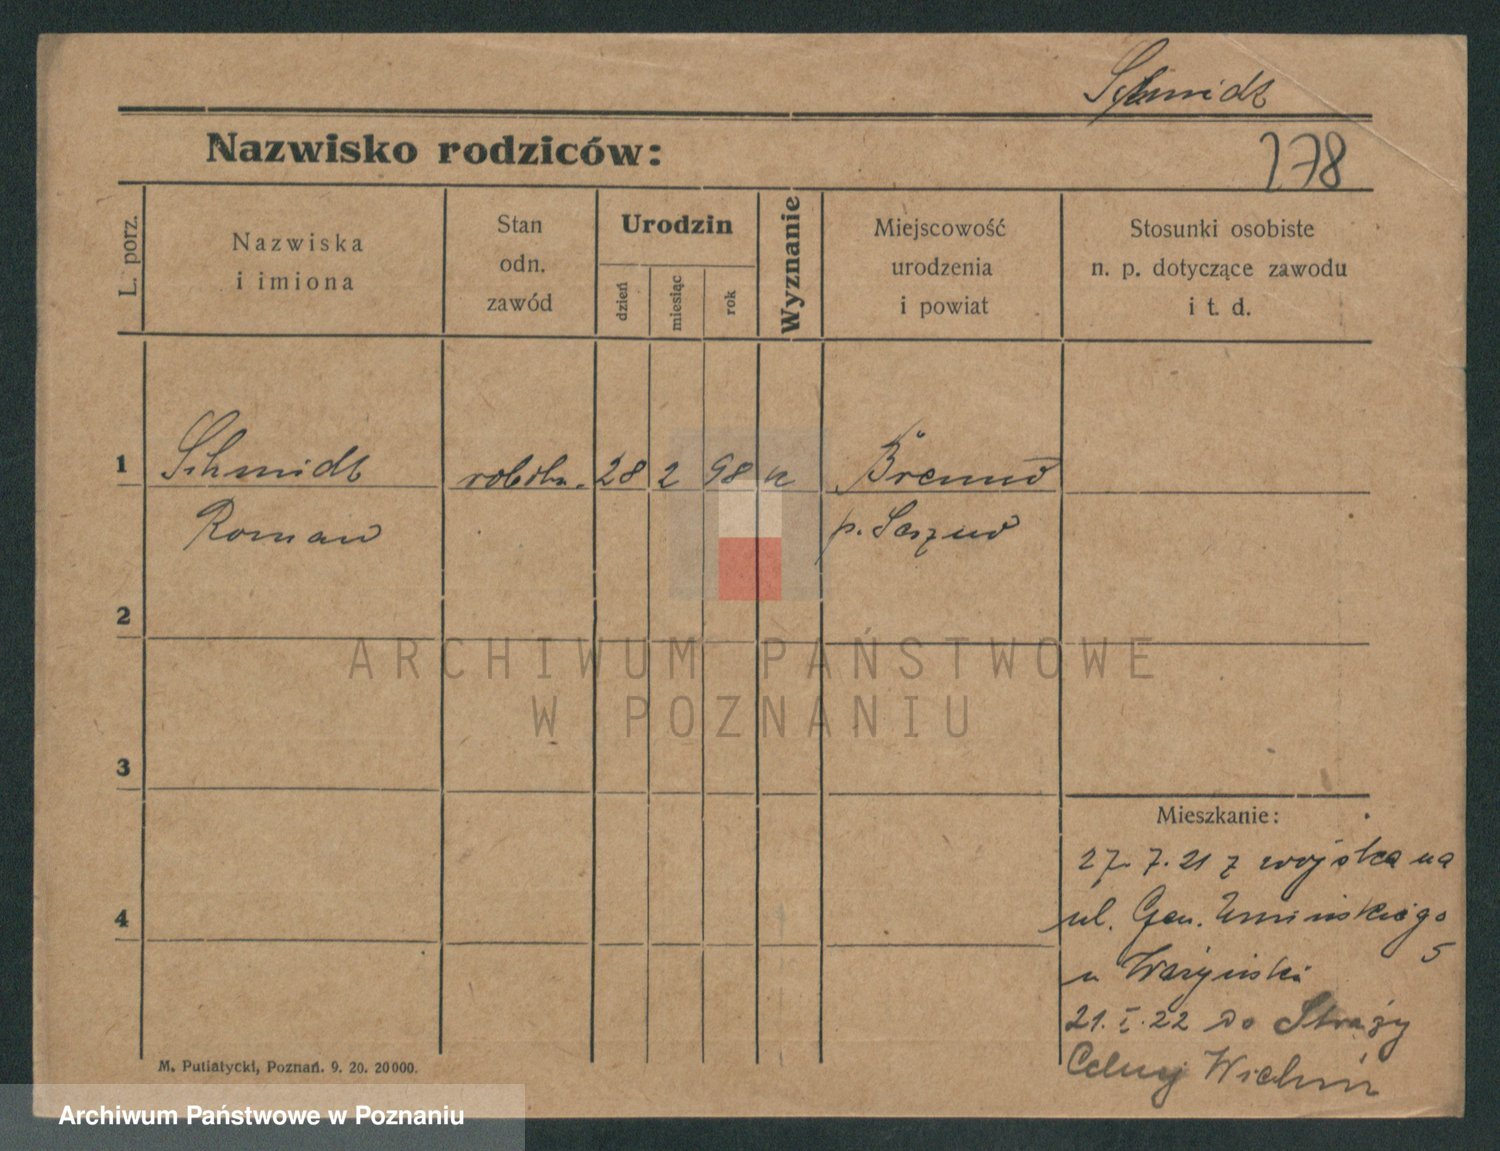 Schmidt
Nazwisko rodziców:
178
L. porz.
Nazwiska
i imiona
Stan
odn.
zawód
Urodzin
dzień
miesiąc
rok
Wyznanie
Miejscowość
urodzenia
i powiat
Stosunki osobiste
n. p. dotyczące zawodu
i t. d.
1 Schmidt robotn. 28 2 98 k
Roman p.
2
3
4
ARCHIWUM PAŃSTWOWE
W POZNANIU
Mieszkanie:
27. 7. 21 z wojska na
ul. Gen. Umińskiego
5
u
21. I. 22 do Straży
Celnej
M. Putiatycki, Poznań. 9. 20. 20000.
Archiwum Państwowe w Poznaniu